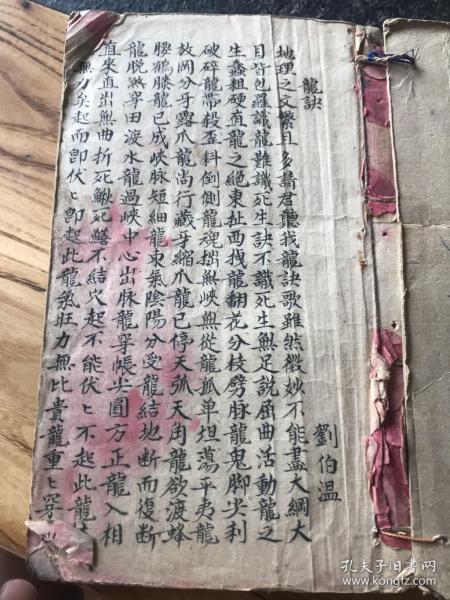 龍訣
劉伯温
地理之文繁且多請君聽我龍訣歌雖然微妙不能盡大綱大
目皆包羅識龍難識死生訣不識死生無足說屈曲活動龍之
生蠢粗硬直龍之絕東扯西拽龍翻花分枝劈脉龍鬼脚尖利
破碎龍帶殺歪斜倒側龍硯拙無峽無從龍孤單坦蕩平夷龍
放岡分牙露爪龍尚行藏牙縮爪龍已停天弧天角龍欲渡蜂
腰鶴膝龍已成峽脉短細龍束氣陰陽分受龍結地斷而復斷
龍脫無穿田渡水龍過峽中心出脉龍穿帳尖圓方正龍入相
直來直出無曲折死鰍死鱔不結穴起不能伏〻不起此龍
無力矣起而即伏〻即起此龍氣旺力無比貴龍重〻穿
孔夫子旧书网
kongfz.com